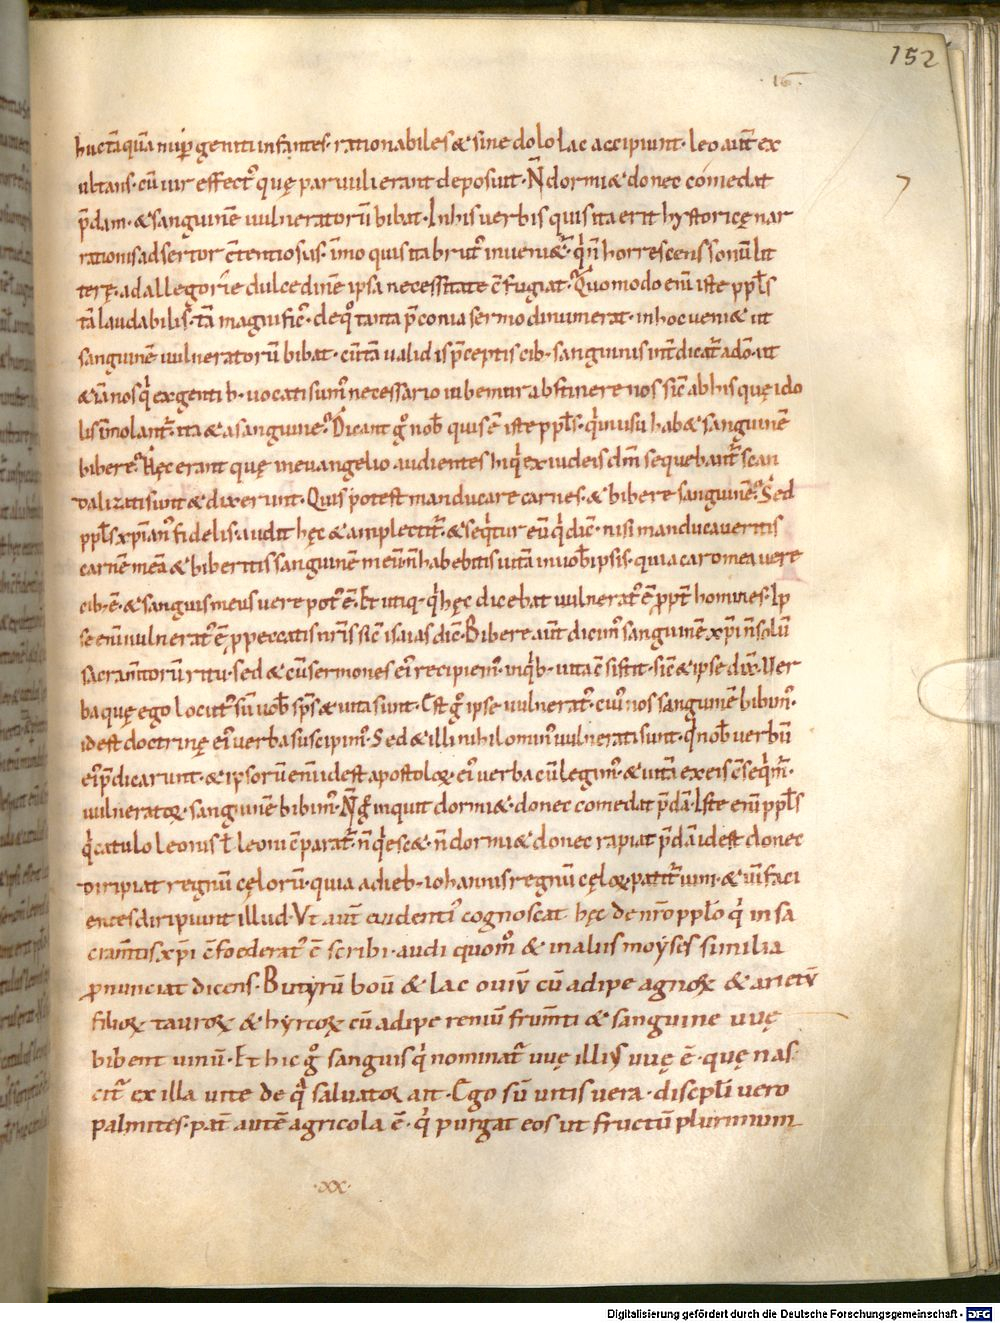 152
16
hucta qua nup geniti infantes · rationabiles & sine dolo lac accipiunt · leo aut ex
ultans · cū uir effect' quę paruuli erant deposuit · N̄ dormi& donec comedat
p̄dam · & sanguinē uulneratorū bibat · In his uerbis quis ita erit hystoricę nar
rationis adsertor c̄tentiosus · īmo quis ita brut' inueni&ur qui n̄ horrescens sonū lit
terę · ad allegorię dulcedinē ipsa necessitate c̄fugiat · Quomodo enī iste ppl̄s
tā laudabilis · tā magnific' · de quo tanta p̄conia sermo dinumerat · in hoc ueni& ut
sanguinē uulneratorū bibat · cū tā ualidis p̄ceptis cib · sanguinis int̄dicat' a dō · ut
& iā nos qui ex gentib · uocati sum' necessario iubemur abstinere nos sic̄ ab his quę ido
lis īmolant' · ita & a sanguine · Dicant g° nob̄ quis ē iste ppl̄s · qui in usu hab& sanguinē
bibere · Hęc erant quę in euangelio audientes hi qui ex iudeis dn̄m sequebant' scan
dalizati sunt & dixerunt · Quis potest manducare carnes · & bibere sanguinē · Sed
ppl̄s xp̄ian' fidelis · audit hęc & amplectit' · & sequitur eū qui dic̄ · nisi manducaueritis
carnē meā & biberitis sanguinē meū n̄ habebitis uitā in uob̄ ipsis · quia caro mea uere
cib · ē · & sanguis meus uere pot' ē · Et utiq · qui hęc dicebat uulnerat' ē ppt̄ homines · Ip
se enī uulnerat' ē p peccatis nr̄is sic̄ isaias dic̄ · Bibere aut̄ dicim' sanguinē xp̄i n̄ solū
sacramtorū ritu · sed & cū sermones ei' recipiem' · in quib · uita c̄sistit · sic̄ & ipse dix̄ · Uer
ba quę ego locut' sū uob̄ sps̄ & uita sunt · Est g° ipse uulnerat' · cui' nos sanguinē bibim' ·
id est doctrinę ei' uerba suscipim' · Sed & illi nihilomin' uulnerati sunt · qui nob̄ uerbū
ei' p̄dicarunt · & ipsorū enī id est apostoloꝝ ei' uerba cū legim' · & uitā ex eis c̄sequim' ·
uulneratoꝝ · sanguinē bibim' · N̄ g° inquit dormi& · donec comedat p̄dā · Iste enī ppl̄s
qui catulo leonis t̄ leoni c̄parat' · n̄ quiesc& · n̄ dormi& donec rapiat p̄dā id est donec
diripiat regnū cęlorū · quia a dieb · iohannis regnū cęloꝝ patitur uim · & uī faci
entes diripiunt illud · Vt aut̄ euidenti' cognoscat · hęc de nr̄o pplo qui in sa
cramtis xp̄i c̄foederat' ē scribi · audi quom° & in aliis moyses similia
pnunciat dicens · Butyrū boū & lac ouiū cū adipe agnoꝝ & arietū
filioꝝ tauroꝝ & hyrcoꝝ cū adipe reniū frumti & sanguine uuę
bibent uinū · Et hic g° sanguis qui nominat' uuę illius uuę ē · quę nas
cit' ex illa uite de qua saluator ait · Ego sū uitis uera · discpli uero
palmites · pat̄ autē agricola ē · qui purgat eos ut fructū plurimum
· xx ·
Digitalisierung gefördert durch die Deutsche Forschungsgemeinschaft - DFG